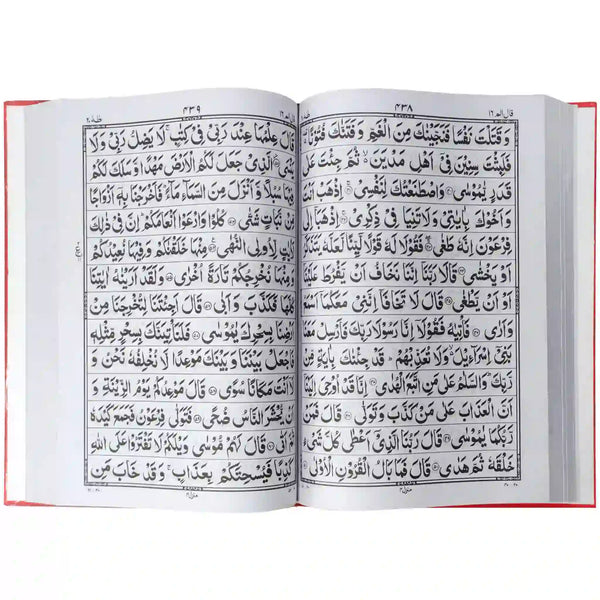 قال الم ١٦
٤٣٨
وَ قَتَلْتَ نَفْسًا فَنَجَّيْنٰكَ مِنَ الْغَمِّ وَ فَتَنّٰكَ فُتُوْنًا
فَلَبِثْتَ سِنِيْنَ فِيْٓ اَهْلِ مَدْيَنَ ثُمَّ جِئْتَ عَلٰى
قَدَرٍ يّٰمُوْسٰى ۝ وَاصْطَنَعْتُكَ لِنَفْسِيْ ۝ اِذْهَبْ اَنْتَ
وَ اَخُوْكَ بِاٰيٰتِيْ وَلَا تَنِيَا فِيْ ذِكْرِيْ ۝ اِذْهَبَآ اِلٰى
فِرْعَوْنَ اِنَّهٗ طَغٰى ۝ فَقُوْلَا لَهٗ قَوْلًا لَّيِّنًا لَّعَلَّهٗ يَتَذَكَّرُ
اَوْ يَخْشٰى ۝ قَالَا رَبَّنَآ اِنَّنَا نَخَافُ اَنْ يَّفْرُطَ عَلَيْنَآ
اَوْ اَنْ يَّطْغٰى ۝ قَالَ لَا تَخَافَآ اِنَّنِيْ مَعَكُمَآ اَسْمَعُ
وَاَرٰى ۝ فَاْتِيٰهُ فَقُوْلَآ اِنَّا رَسُوْلَا رَبِّكَ فَاَرْسِلْ مَعَنَا
بَنِيْٓ اِسْرَآءِيْلَ وَلَا تُعَذِّبْهُمْ قَدْ جِئْنٰكَ بِاٰيَةٍ مِّنْ
رَّبِّكَ وَالسَّلٰمُ عَلٰى مَنِ اتَّبَعَ الْهُدٰى ۝ اِنَّا قَدْ اُوْحِيَ اِلَيْنَآ
اَنَّ الْعَذَابَ عَلٰى مَنْ كَذَّبَ وَتَوَلّٰى ۝ قَالَ فَمَنْ
رَّبُّكُمَا يٰمُوْسٰى ۝ قَالَ رَبُّنَا الَّذِيْٓ اَعْطٰى كُلَّ شَيْءٍ
خَلْقَهٗ ثُمَّ هَدٰى ۝ قَالَ فَمَا بَالُ الْقُرُوْنِ الْاُوْلٰى ۝
طٰهٰ ٢٠
٤٣٩
قَالَ عِلْمُهَا عِنْدَ رَبِّيْ فِيْ كِتٰبٍ لَا يَضِلُّ رَبِّيْ وَلَا
يَنْسَى ۝ الَّذِيْ جَعَلَ لَكُمُ الْاَرْضَ مَهْدًا وَّ سَلَكَ لَكُمْ
فِيْهَا سُبُلًا وَّ اَنْزَلَ مِنَ السَّمَآءِ مَآءً فَاَخْرَجْنَا بِهٖٓ اَزْوَاجًا
مِّنْ نَّبَاتٍ شَتّٰى ۝ كُلُوْا وَارْعَوْا اَنْعَامَكُمْ اِنَّ فِيْ ذٰلِكَ
لَاٰيٰتٍ لِّاُولِي النُّهٰى ۝ مِنْهَا خَلَقْنٰكُمْ وَفِيْهَا نُعِيْدُكُمْ
وَمِنْهَا نُخْرِجُكُمْ تَارَةً اُخْرٰى ۝ وَلَقَدْ اَرَيْنٰهُ اٰيٰتِنَا
كُلَّهَا فَكَذَّبَ وَ اَبٰى ۝ قَالَ اَجِئْتَنَا لِتُخْرِجَنَا مِنْ
اَرْضِنَا بِسِحْرِكَ يٰمُوْسٰى ۝ فَلَنَاْتِيَنَّكَ بِسِحْرٍ مِّثْلِهٖ
فَاجْعَلْ بَيْنَنَا وَ بَيْنَكَ مَوْعِدًا لَّا نُخْلِفُهٗ نَحْنُ وَ
لَآ اَنْتَ مَكَانًا سُوًى ۝ قَالَ مَوْعِدُكُمْ يَوْمُ الزِّيْنَةِ وَ
اَنْ يُّحْشَرَ النَّاسُ ضُحًى ۝ فَتَوَلّٰى فِرْعَوْنُ فَجَمَعَ كَيْدَهٗ
ثُمَّ اَتٰى ۝ قَالَ لَهُمْ مُّوْسٰى وَيْلَكُمْ لَا تَفْتَرُوْا عَلَى اللّٰهِ
كَذِبًا فَيُسْحِتَكُمْ بِعَذَابٍ وَ قَدْ خَابَ مَنِ